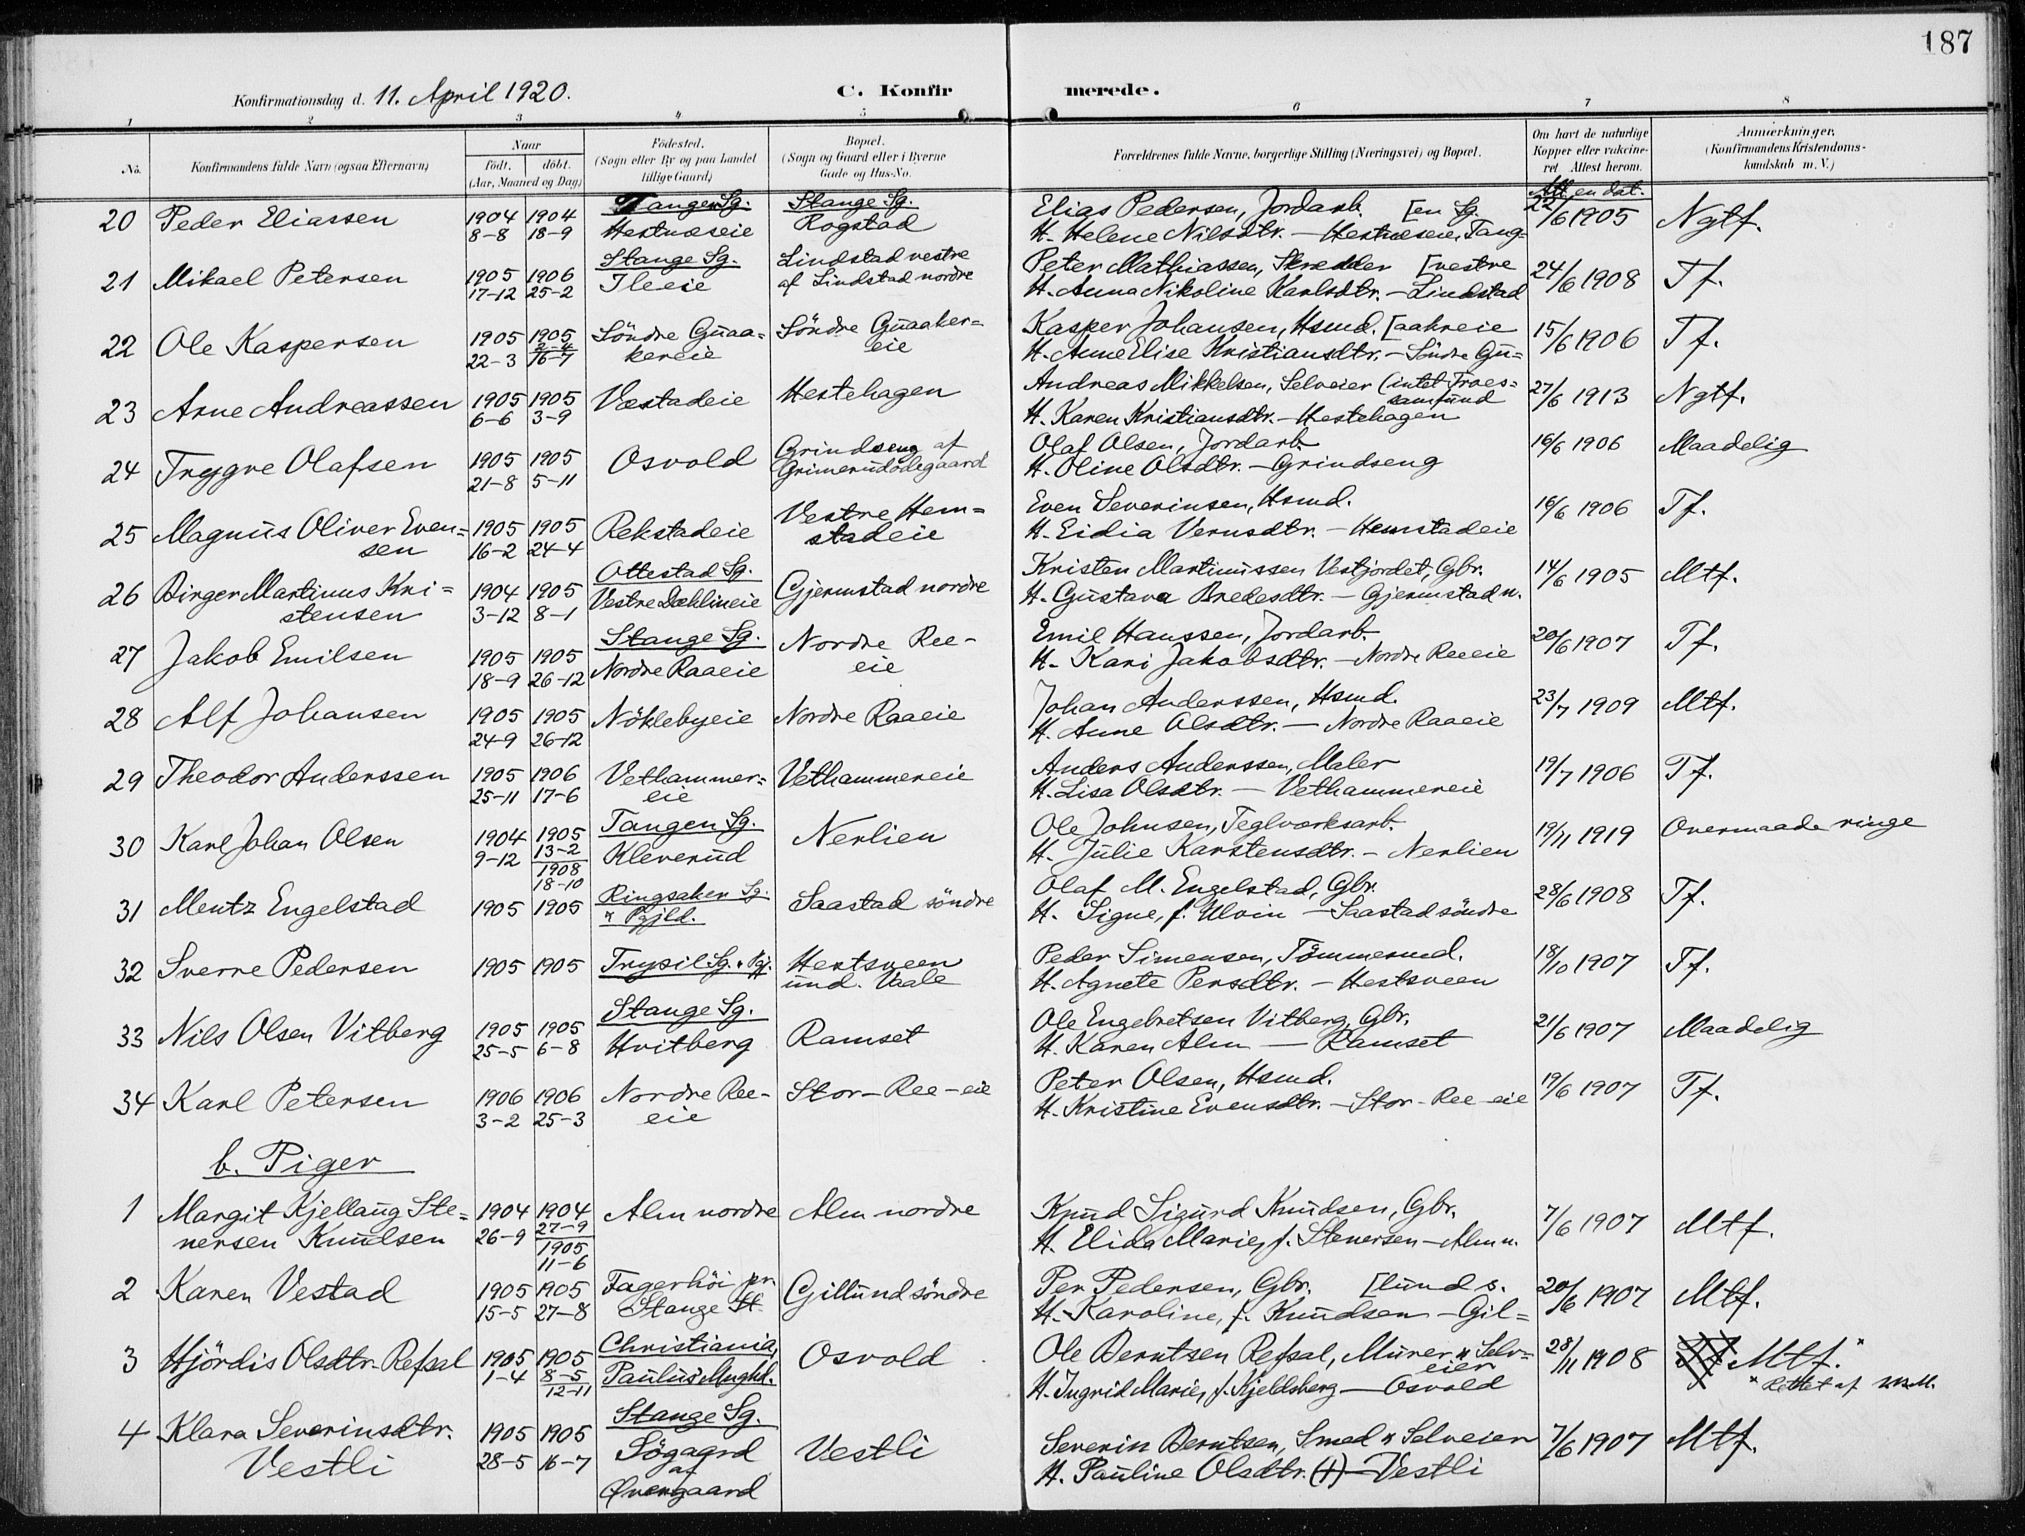 187
Konfirmationsdag d. 11. April 1920. C. Konfirmerede.
1 2 3 4 5 6 7 8
No. Konfirmandens fulde Navn (ogsaa Efternavn) Naar født. døbt. (Aar, Maaned og Dag) Fødested. (Sogn eller By og paa Landet tillige Gaard) Bopæl. (Sogn og Gaard eller i Byerne Gade og Hus-No. Forældrenes fulde Navne, borgerlige Stilling (Næringsvei) og Bopæl. Om havt de naturlige Kopper eller vakcineret Attest herom. Anmærkninger, (Konfirmandens Kristendomskundskab m. V.)
Tangen Sg. Stange Sg. Att en dat.
20 Peder Eliassen 1904 1904 Hestnæseie Rogstad Elias Pedersen, Jordarb. [en Sg. 22/6 1905 Ngtf.
8-8 18-9 H. Helene Nilsdtr. - Hestnæseie, Tang-
21 Mikael Petersen 1905 1906 Stange Sg. Lindstad vestre Peter Mathiassen, Skrædder [vestre 24/6 1908 Tf.
17-12 25-2 Ileeie af Lindstad nordre H. Anna Nikoline Karlsdtr. - Lindstad
22 Ole Kaspersen 1905 1905 Söndre Guaa- Söndre Guaaker= Kasper Johansen, Hsmd. [aakreie 15/6 1906 Tf.
22-3 2-4 16-7 kereie eie H. Anne Elise Kristiansdtr. - Söndre Gu=
23 Arne Andreassen 1905 1905 Væstadeie Hestehagen Andreas Mikkelsen, Selveier (intet Troes= 27/6 1913 Ngtf.
6-6 3-9 samfund H. Karen Kristiansdtr. - Hestehagen
24 Trygve Olafsen 1905 1905 Osvold Grindseng af Olaf Olsen, Jordarb. 16/6 1906 Maadelig
21-8 5-11 Grimerudödegaard H. Oline Olsdtr. - Grindseng
25 Magnus Oliver Even= 1905 1905 Rekstadeie Vestre Hem= Even Severinsen, Hsmd. 16/6 1906 Tf.
sen 16-2 24-4 stadeie H. Eidia Vernsdtr. - Hemstadeie
26 Birger Martinus Kri= 1904 1905 Ottestad Sg. Gjermstad nordre Kristen Martinussen Vestjordet, Gbr. 14/6 1905 Mtf.
stensen 3-12 8-1 Vestre Dæhlineie H. Gustava Bredesdtr. - Gjermstad n.
27 Jakob Emilsen 1905 1905 Stange Sg. Nordre Ree- Emil Hanssen, Jordarb. 20/6 1907 Tf.
18-9 26-12 Nordre Raaeie eie H. Kari Jakobsdtr. - Nordre Reeeie
28 Alf Johansen 1905 1905 Nöklebyeie Nordre Raaeie Johan Anderssen, Hsmd. 23/7 1909 Mtf.
24-9 26-12 H. Anne Olsdtr. - Nordre Raaeie
29 Theodor Anderssen 1905 1906 Vethammer= Vethammereie Anders Anderssen, Maler 19/7 1906 Tf.
25-11 17-6 eie H. Lisa Olsdtr. - Vethammereie
30 Karl Johan Olsen 1904 1905 Tangen Sg. Nerlien Ole Johnsen, Teglværksarb. 19/11 1919 Overmaade ringe
9-12 13-2 1908 18-10 Kleverud H. Julie Karstensdtr. - Nerlien
31 Mentz Engelstad 1905 1905 Ringsaker Sg. Saastad söndre Olaf M. Engelstad, Gbr. 28/6 1908 Tf.
" Pgjld. H. Signe, f. Ulvin - Saastad söndre
32 Sverre Pedersen 1905 1905 Trysil Sg. Hestsveen Peder Simensen, Tömmermd. 18/10 1907 Tf.
und. Vaale H. Agnete Persdtr. - Hestsveen
33 Nils Olsen Vitberg 1905 1905 Stange Sg. Ramset Ole Engebretsen Vitberg, Gbr. 21/6 1907 Maadelig
25-5 6-8 Hvitberg H. Karen Alm - Ramset
34 Karl Petersen 1906 1906 Nordre Ree- Stor-Ree-eie Peter Olsen, Hsmd. 19/6 1907 Tf.
3-2 25-3 eie H. Kristine Evensdtr. - Stor-Ree-eie
b. Piger
1 Margit Kjellaug Ste= 1904 1904 Alm nordre Alm nordre Knud Sigurd Knudsen, Gbr. 7/6 1907 Mtf.
nersen Knudsen 26-9 27-9 1905 11-6 H. Elida Marie, f. Stenersen - Alm n.
2 Karen Vestad 1905 1905 Fagerhöi pr. Gillund söndre Per Pedersen, Gbr. [lund s. 20/6 1907 Mtf.
15-5 27-8 Stange St. H. Karoline, f. Knudsen - Gil=
3 Hjördis Olsdtr. Refsal 1905 1905 Christiania, Osvold Ole Berntsen Refsal, Murer & Selv= eier 28/11 1908 Mtf.*
1-4 8-5 12-11 Paulus Mnghd. H. Ingrid Marie, f. Kjeldsberg - Osvold * Rettet af
4 Klara Severinsdtr. 1905 1905 Stange Sg. Vestli Severin Berntsen, Smed & Selveier 7/6 1907 Mtf.
Vestli 28-5 16-7 Sögaard af Övergaard H. Pauline Olsdtr. (†) - Vestli